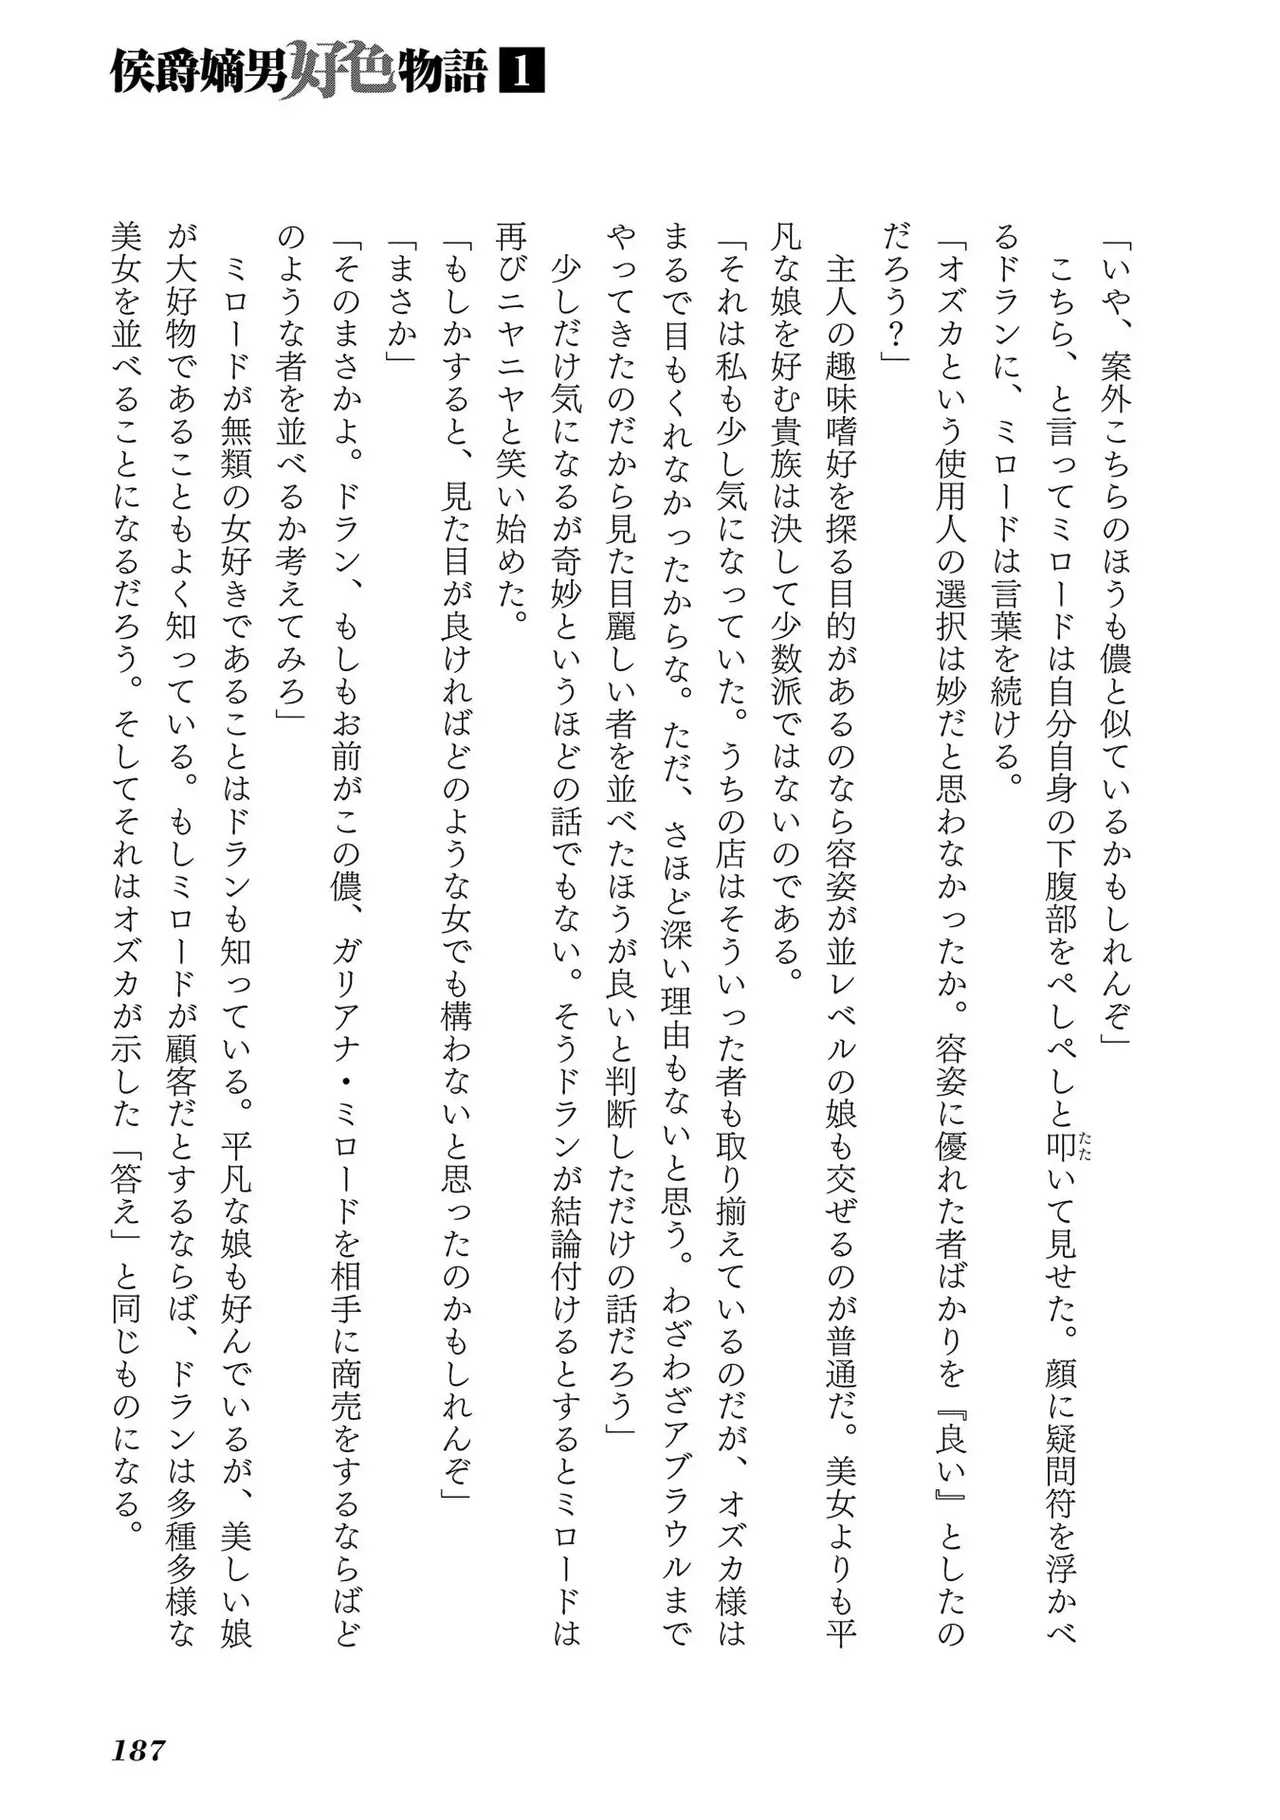 侯爵嫡男好色物語 1
「いや、案外こちらのほうも儂と似ているかもしれんぞ」
　こちら、と言ってミロードは自分自身の下腹部をぺしぺしと叩いて見せた。顔に疑問符を浮かべ
るドランに、ミロードは言葉を続ける。
「オズカという使用人の選択は妙だと思わなかったか。容姿に優れた者ばかりを『良い』としたの
だろう？」
　主人の趣味嗜好を探る目的があるのなら容姿が並レベルの娘も交ぜるのが普通だ。美女よりも平
凡な娘を好む貴族は決して少数派ではないのである。
「それは私も少し気になっていた。うちの店はそういった者も取り揃えているのだが、オズカ様は
まるで目もくれなかったからな。ただ、さほど深い理由もないと思う。わざわざアブラウルまで
やってきたのだから見た目麗しい者を並べたほうが良いと判断しただけの話だろう」
　少しだけ気になるが奇妙というほどの話でもない。そうドランが結論付けるとするとミロードは
再びニヤニヤと笑い始めた。
「もしかすると、見た目が良ければどのような女でも構わないと思ったのかもしれんぞ」
「まさか」
「そのまさかよ。ドラン、もしもお前がこの儂、ガリアナ・ミロードを相手に商売をするならばど
のような者を並べるか考えてみろ」
　ミロードが無類の女好きであることはドランも知っている。平凡な娘も好んでいるが、美しい娘
が大好物であることもよく知っている。もしミロードが顧客だとするならば、ドランは多種多様な
美女を並べることになるだろう。そしてそれはオズカが示した「答え」と同じものになる。
たた
187